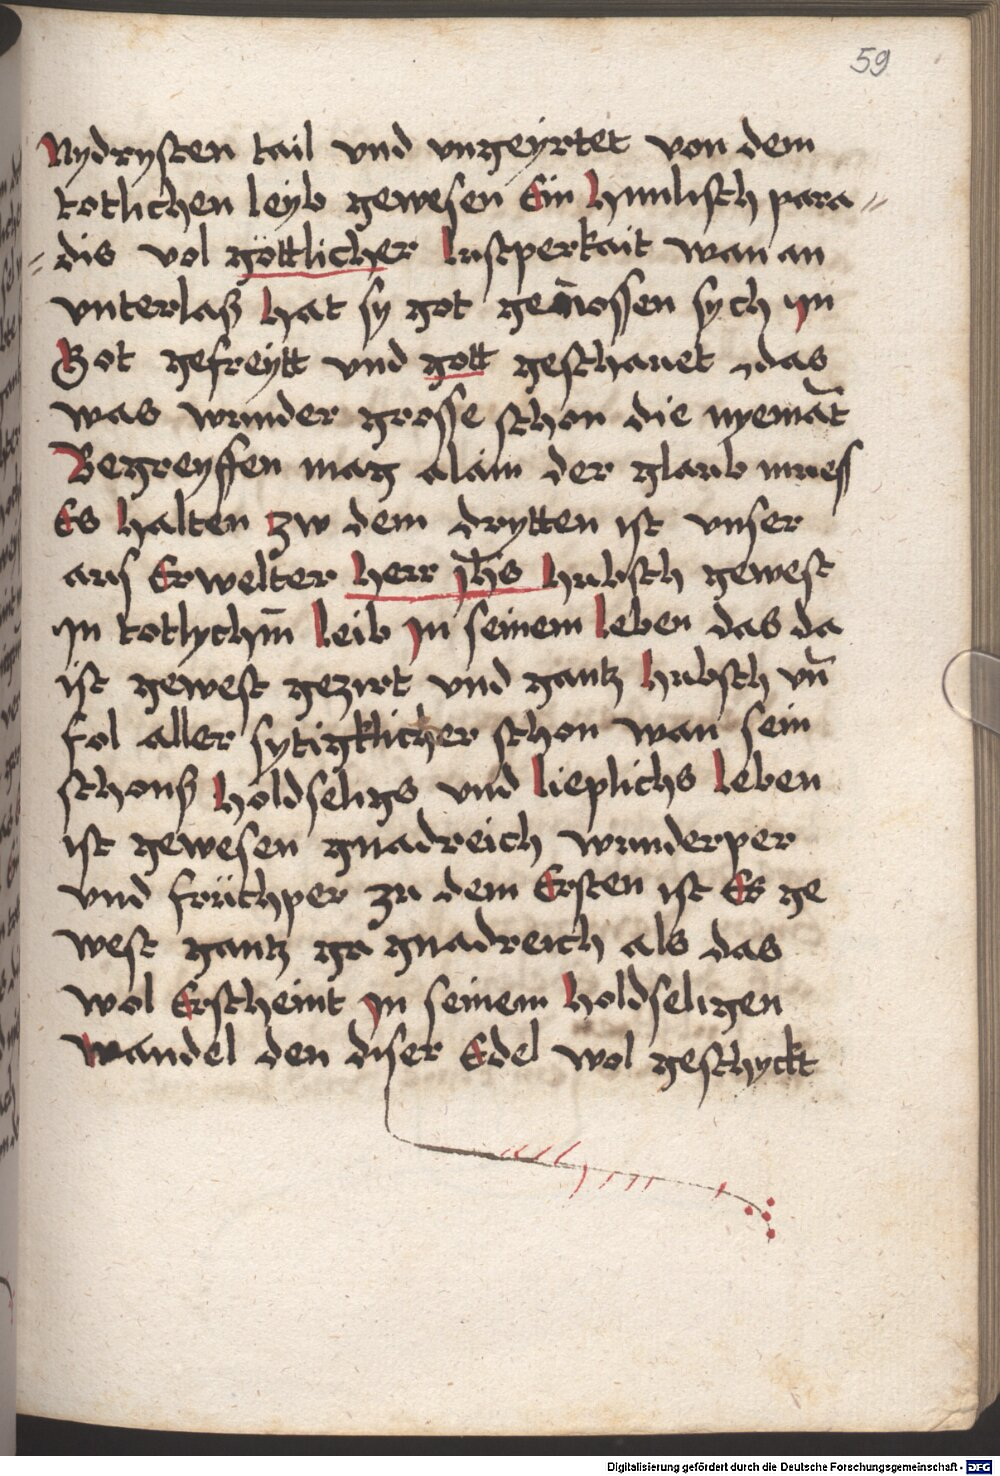 59
Nydrysten tail vnd vngeyrtet von dem
totlichen leyb gewesen Ein himlisch para〃
〃dis vol göttlicher lustperkait wan an
vnterlaß hat sy got genossen sych jn
Got gefreytt vnd gott geschauet , das
was wunder grosse schon die nyemāt
Begreyffen mag alain der glaub muess
Es halten zw dem drytten ist vnser
aus Erwelter herr jhs hubsch gewest
jn totlychm̄ leib jn seinem leben das da
ist gewest gezirt vnd gantz hubsch vn̄
fol aller sytigklicher schon wan sein
schonß holdseligs vnd lieplichs leben
ist gewesen gnadreich wunderper
vnd früchper zu dem Ersten ist Es ge
west gantz gar gnadreich als das
wol Erscheint jn seinem holdseligen
wandel den diser Edel wol geschyckt
Digitalisierung gefördert durch die Deutsche Forschungsgemeinschaft - DFG